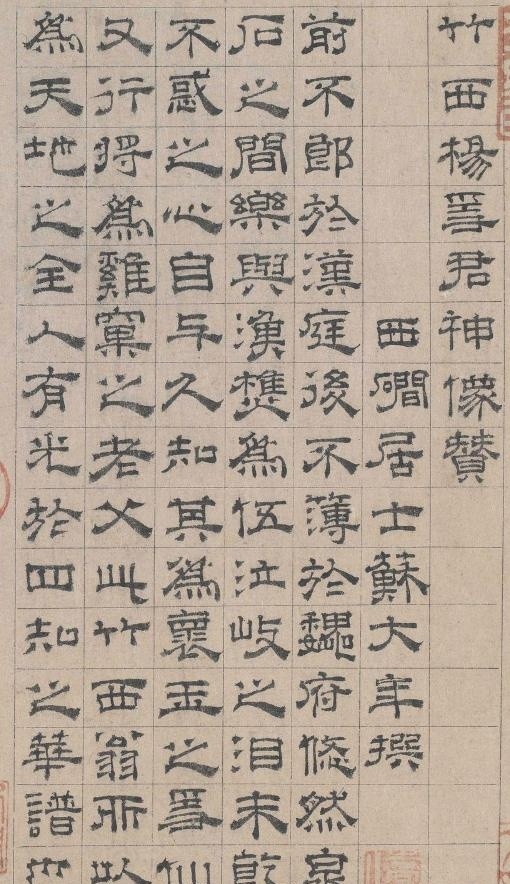 竹西楊隱君神像贊
西磵居士蘇大年撰
前不郎於漢庭後不簿於魏府倐然泉
石之間樂與漁樵爲伍泣岐之泪未乾
不惑之心自与久知其爲褱玉之隱仙
又行將爲雞窠之老父此竹西翁所以
爲天地之全人有光於四知之華譜